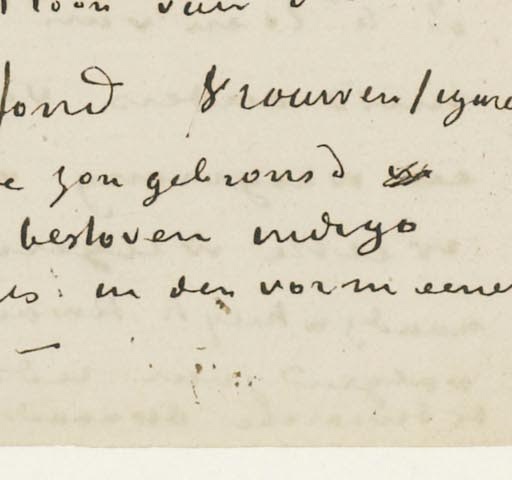 toon van
fond Vrouwenfigure
e zon gebronsd
bestoven indigo
is in den vorm eener
—